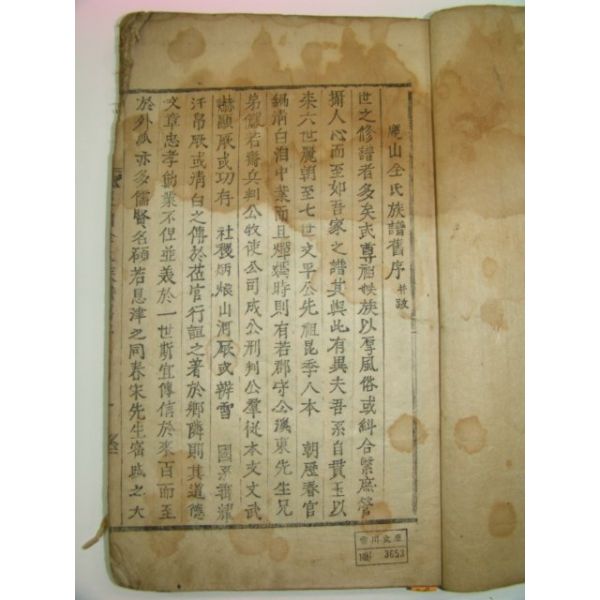 慶山全氏族譜舊序 并跋
世之修譜者多矣或尊祖收族以厚風俗或糾合緊庶管
攝人心而至如吾家之譜其與此有異夫吾系自貫玉以
来六世麗朝至七世文平公先祖昆季八本 朝歷春官
錫清白洎中業而且燀爀時則有若郡守公溪東先生兄
弟僉若齋兵判公牧使公司成公刑判公羣從本支文武
赫顯厥或功存 社稷炳烺山河厥或辨雪 國系翡龍
汗帛厥或清白之傳於莅官行誼之著於鄉隣則其道德
文章忠孝勳業不但並義於一世斯宜傳信於來百而至
於外派亦多儒賢名碩若恩津之同春宋先生審 之大
雪川文庫
3653